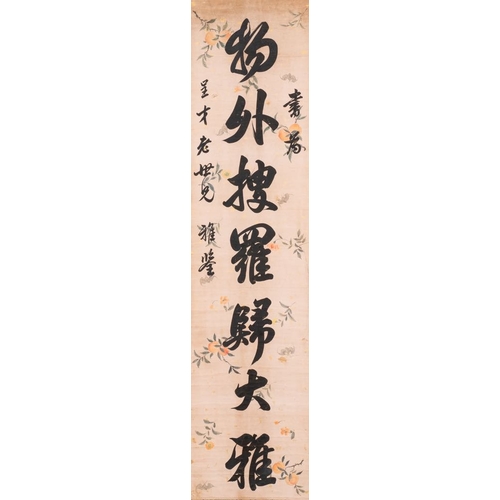 書為
物外搜羅歸大雅
呈才老世兄 雅鑒